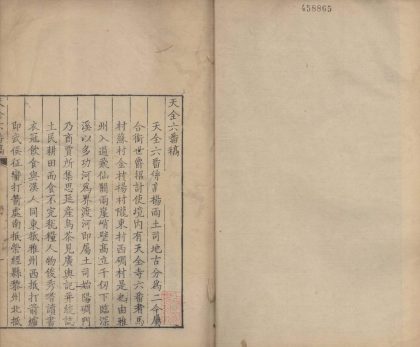 458865
天全六番稿
天全六番傳高楊兩土司地古分爲二今屬
合衛世爵招討使境內有天全寺六番者馬
村蘇村金村楊村隴東村西碉村是也由雅
州入過飛仙關兩崖峭壁萬立千仞下臨深
溪以多功河爲界渡河即屬土司始陽碉門
乃商賈所集思延產烏茶見廣輿記幷統誌
土民耕田而食不完稅糧人物俊秀嗜讀書
衣冠飲食與漢人同東抵雅州西抵打箭爐
即武侯征蠻打箭處南抵滎經縣黎州北抵